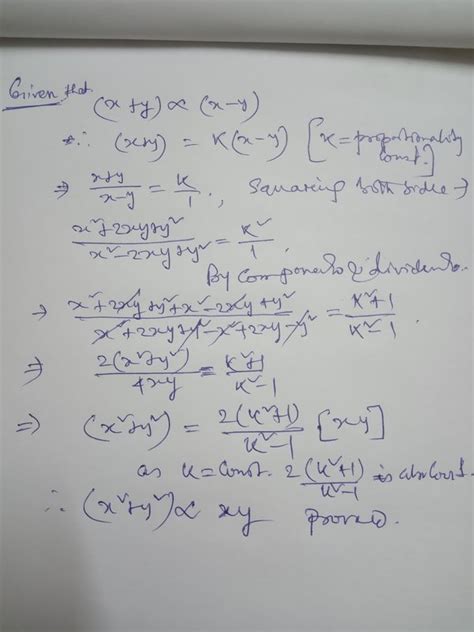 Given that
(x+y) ∝ (x-y)
∴ (x+y) = K(x-y) [K = proportionality const.]
⇒ x+y / x-y = K/1, Squaring both side →
x²+2xy+y² / x²-2xy+y² = K²/1,
By componendo & dividendo.
→ x²+2xy+y²+x²-2xy+y² / x²+2xy+y²-x²+2xy-y² = K²+1 / K²-1
⇒ 2(x²+y²) / 4xy = K²+1 / K²-1
⇒ (x²+y²) = 2(K²+1) / K²-1 [xy]
as K = Const. 2(K²+1) / K²-1 is also Const.
∴ (x²+y²) ∝ xy proved.